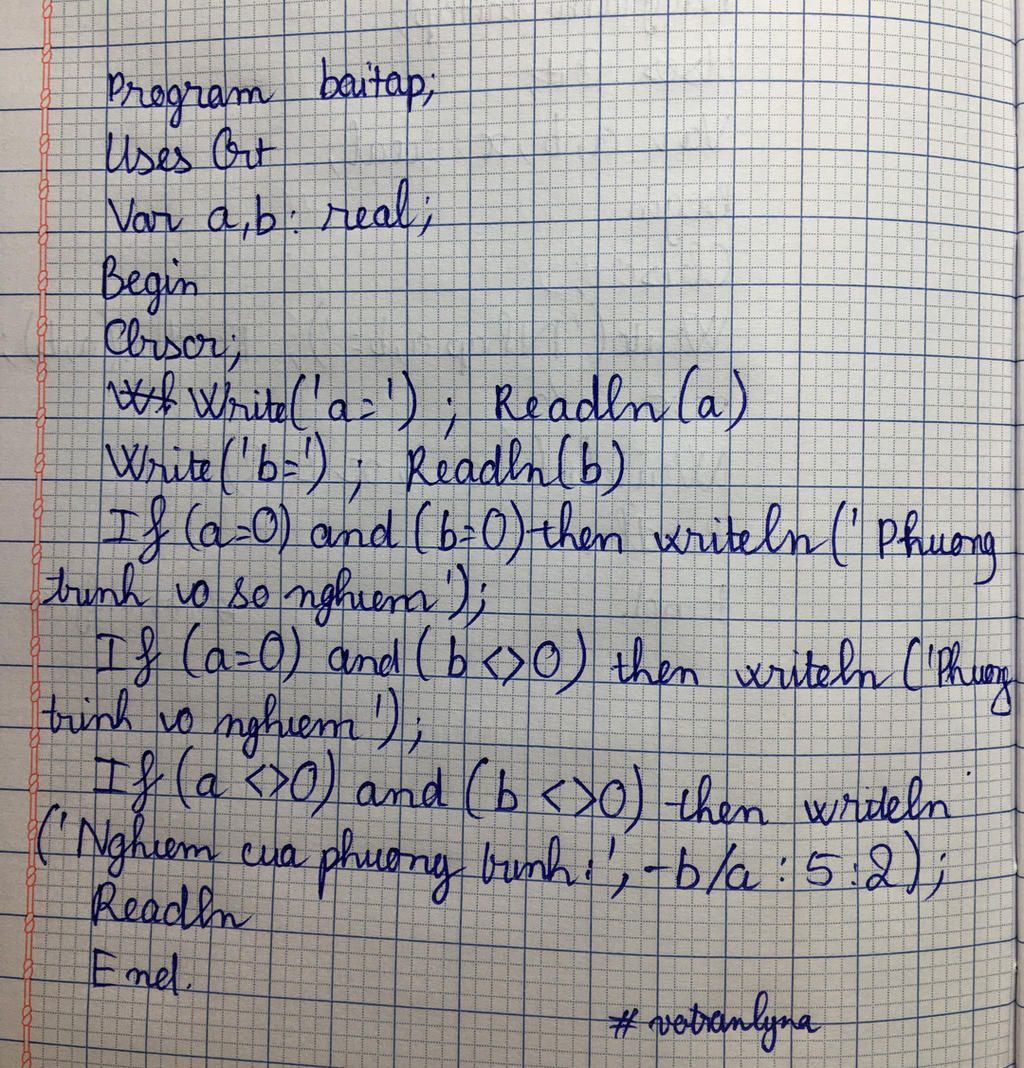 Program baitap;
Uses Crt
Var a,b: real;
Begin
Clrscr;
Write('a='); Readln(a)
Write('b='); Readln(b)
If (a=0) and (b=0) then writeln('Phuong
trinh vo so nghiem');
If (a=0) and (b<>0) then writeln('Phuong
trinh vo nghiem');
If (a<>0) and (b<>0) then writeln
('Nghiem cua phuong trinh:', -b/a:5:2);
Readln
End.
#votranlyna